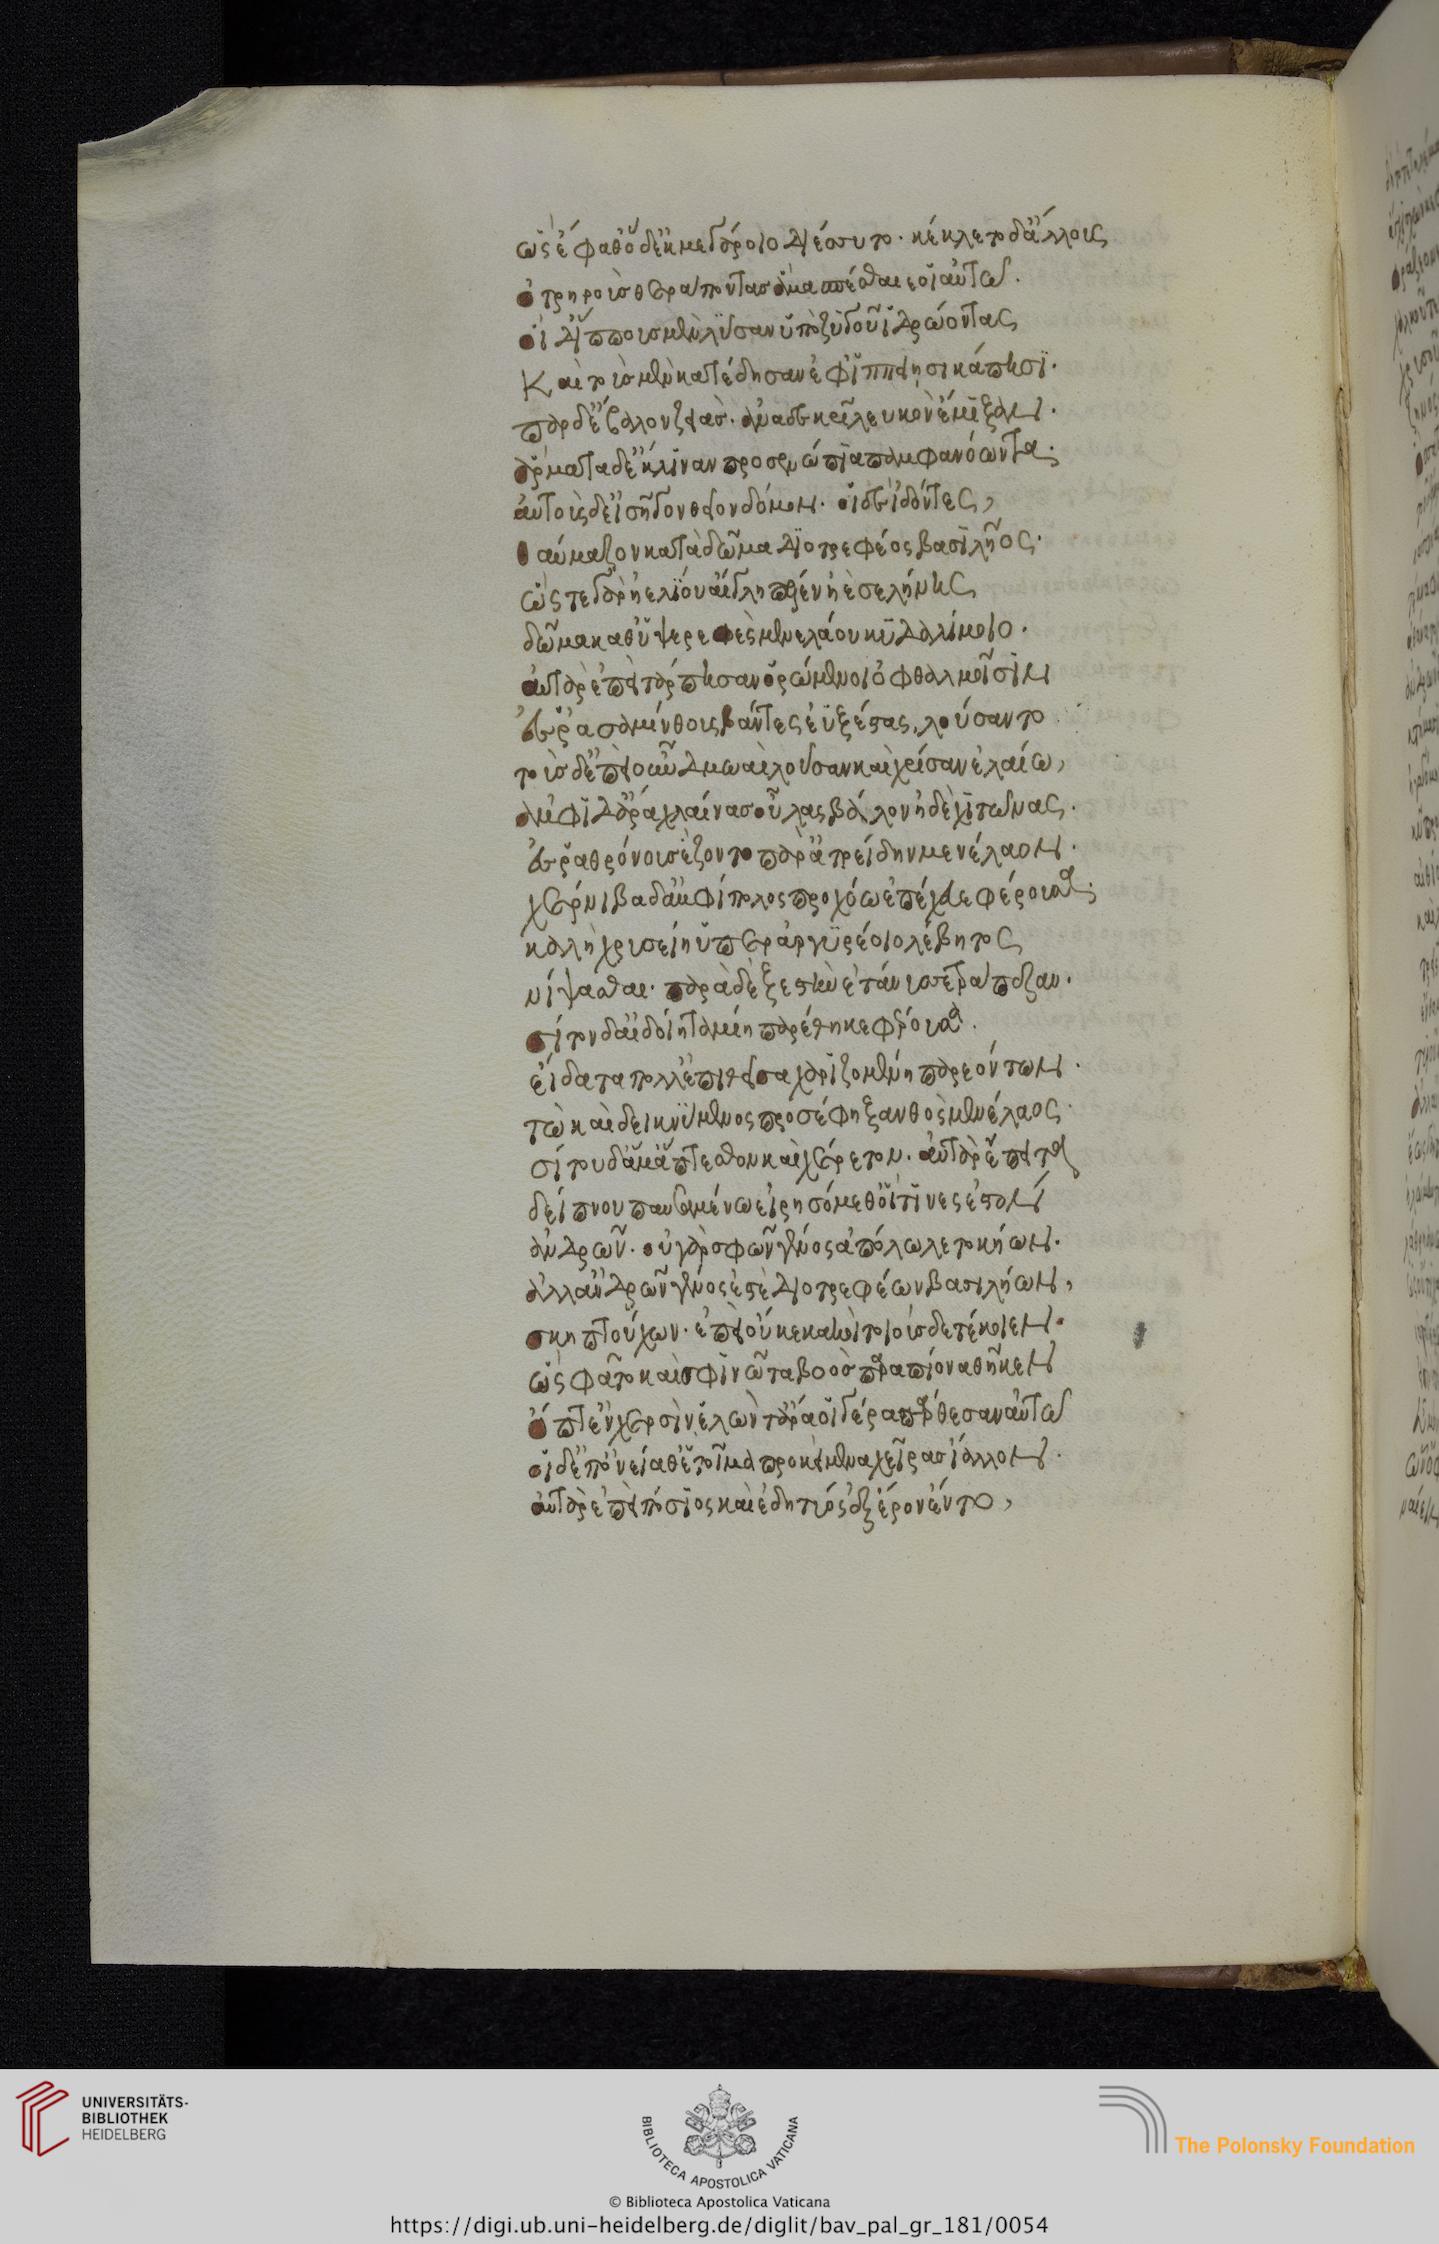 ὣς ἔφαθ' ὁ δ' ἐκ μεγάροιο διέσσυτο. κέκλετο δ' ἄλλους
ὀτρηροὺς θεράποντας ἅμα σπέσθαι ἑοῖ αὐτῶ.
οἱ δ' ἵππους μὲν λῦσαν ὑπὸ ζυγοῦ ἱδρώοντας
καὶ τοὺς μὲν κατέδησαν ἐφ' ἱππείῃσι κάπῃσι.
πὰρ δ' ἔβαλον ζειάς. ἀνὰ δὲ κρῖ λευκὸν ἔμιξαν.
ἅρματα δ' ἔκλιναν πρὸς ἐνώπια παμφανόωντα.
αὐτοὺς δ' εἰσῆγον θεῖον δόμον. οἱ δὲ ἰδόντες,
θαύμαζον κατὰ δῶμα διοτρεφέος βασιλῆος.
ὥς τε γὰρ ἠελίου αἴγλη πέλεν ἠὲ σελήνης
δῶμα καθ' ὑψερεφὲς μενελάου κυδαλίμοιο.
αὐτὰρ ἐπεὶ τάρπησαν ὁρώμενοι ὀφθαλμοῖσιν
ἔς ῥ' ἀσαμίνθους βάντες ἐϋξέστας, λούσαντο
τοὺς δ' ἐπεὶ οὖν δμωαὶ λοῦσαν καὶ χρῖσαν ἐλαίω,
ἀμφὶ δ' ἄρα χλαίνας οὔλας βάλον ἠδὲ χιτῶνας.
ἔς ῥα θρόνους ἕζοντο παρ' ἀτρείδην μενέλαον.
χέρνιβα δ' ἀμφίπολος προχόω ἐπέχευε φέρουσα.
καλῆ χρυσείη ὑπὲρ ἀργυρέοιο λέβητος
νίψασθαι. παρὰ δὲ ξεστὴν ἐτάνυσσε τράπεζαν.
σῖτον δ' αἰδοίη ταμίη παρέθηκε φέρουσα.
εἴδατα πόλλ' ἐπιθεῖσα χαριζομένη παρεόντων.
τὼ καὶ δεικνύμενος προσέφη ξανθὸς μενέλαος
σίτου δ' ἅμ' ἅπτεσθον καὶ χαίρετον. αὐτὰρ ἔπειτα
δείπνου πασσαμένω εἰρησόμεθ' οἵ τινες ἐστὸν
ἀνδρῶν. οὐ γὰρ σφῶν γένος ἀπόλωλε τοκήων.
ἀλλ' ἀνδρῶν γένος ἐστὲ διοτρεφέων βασιλήων,
σκηπτούχων. ἐπεὶ οὔ κε κακοὶ τοιούσδε τέκοιεν.
ὣς φάτο καί σφιν νῶτα βοὸς παρὰ πίονα θῆκεν
ὄπτ' ἐν χερσὶν ἑλὼν τά ῥά οἱ γέρα πάρθεσαν αὐτῶ
οἱ δ' ἐπ' ὀνείαθ' ἑτοῖμα προκείμενα χεῖρας ἴαλλον.
αὐτὰρ ἐπεὶ πόσιος καὶ ἐδητύος ἐξ ἔρον ἕντο,
UNIVERSITÄTS-
BIBLIOTHEK
HEIDELBERG
BIBLIOTECA APOSTOLICA VATICANA
The Polonsky Foundation
© Biblioteca Apostolica Vaticana
https://digi.ub.uni-heidelberg.de/diglit/bav_pal_gr_181/0054